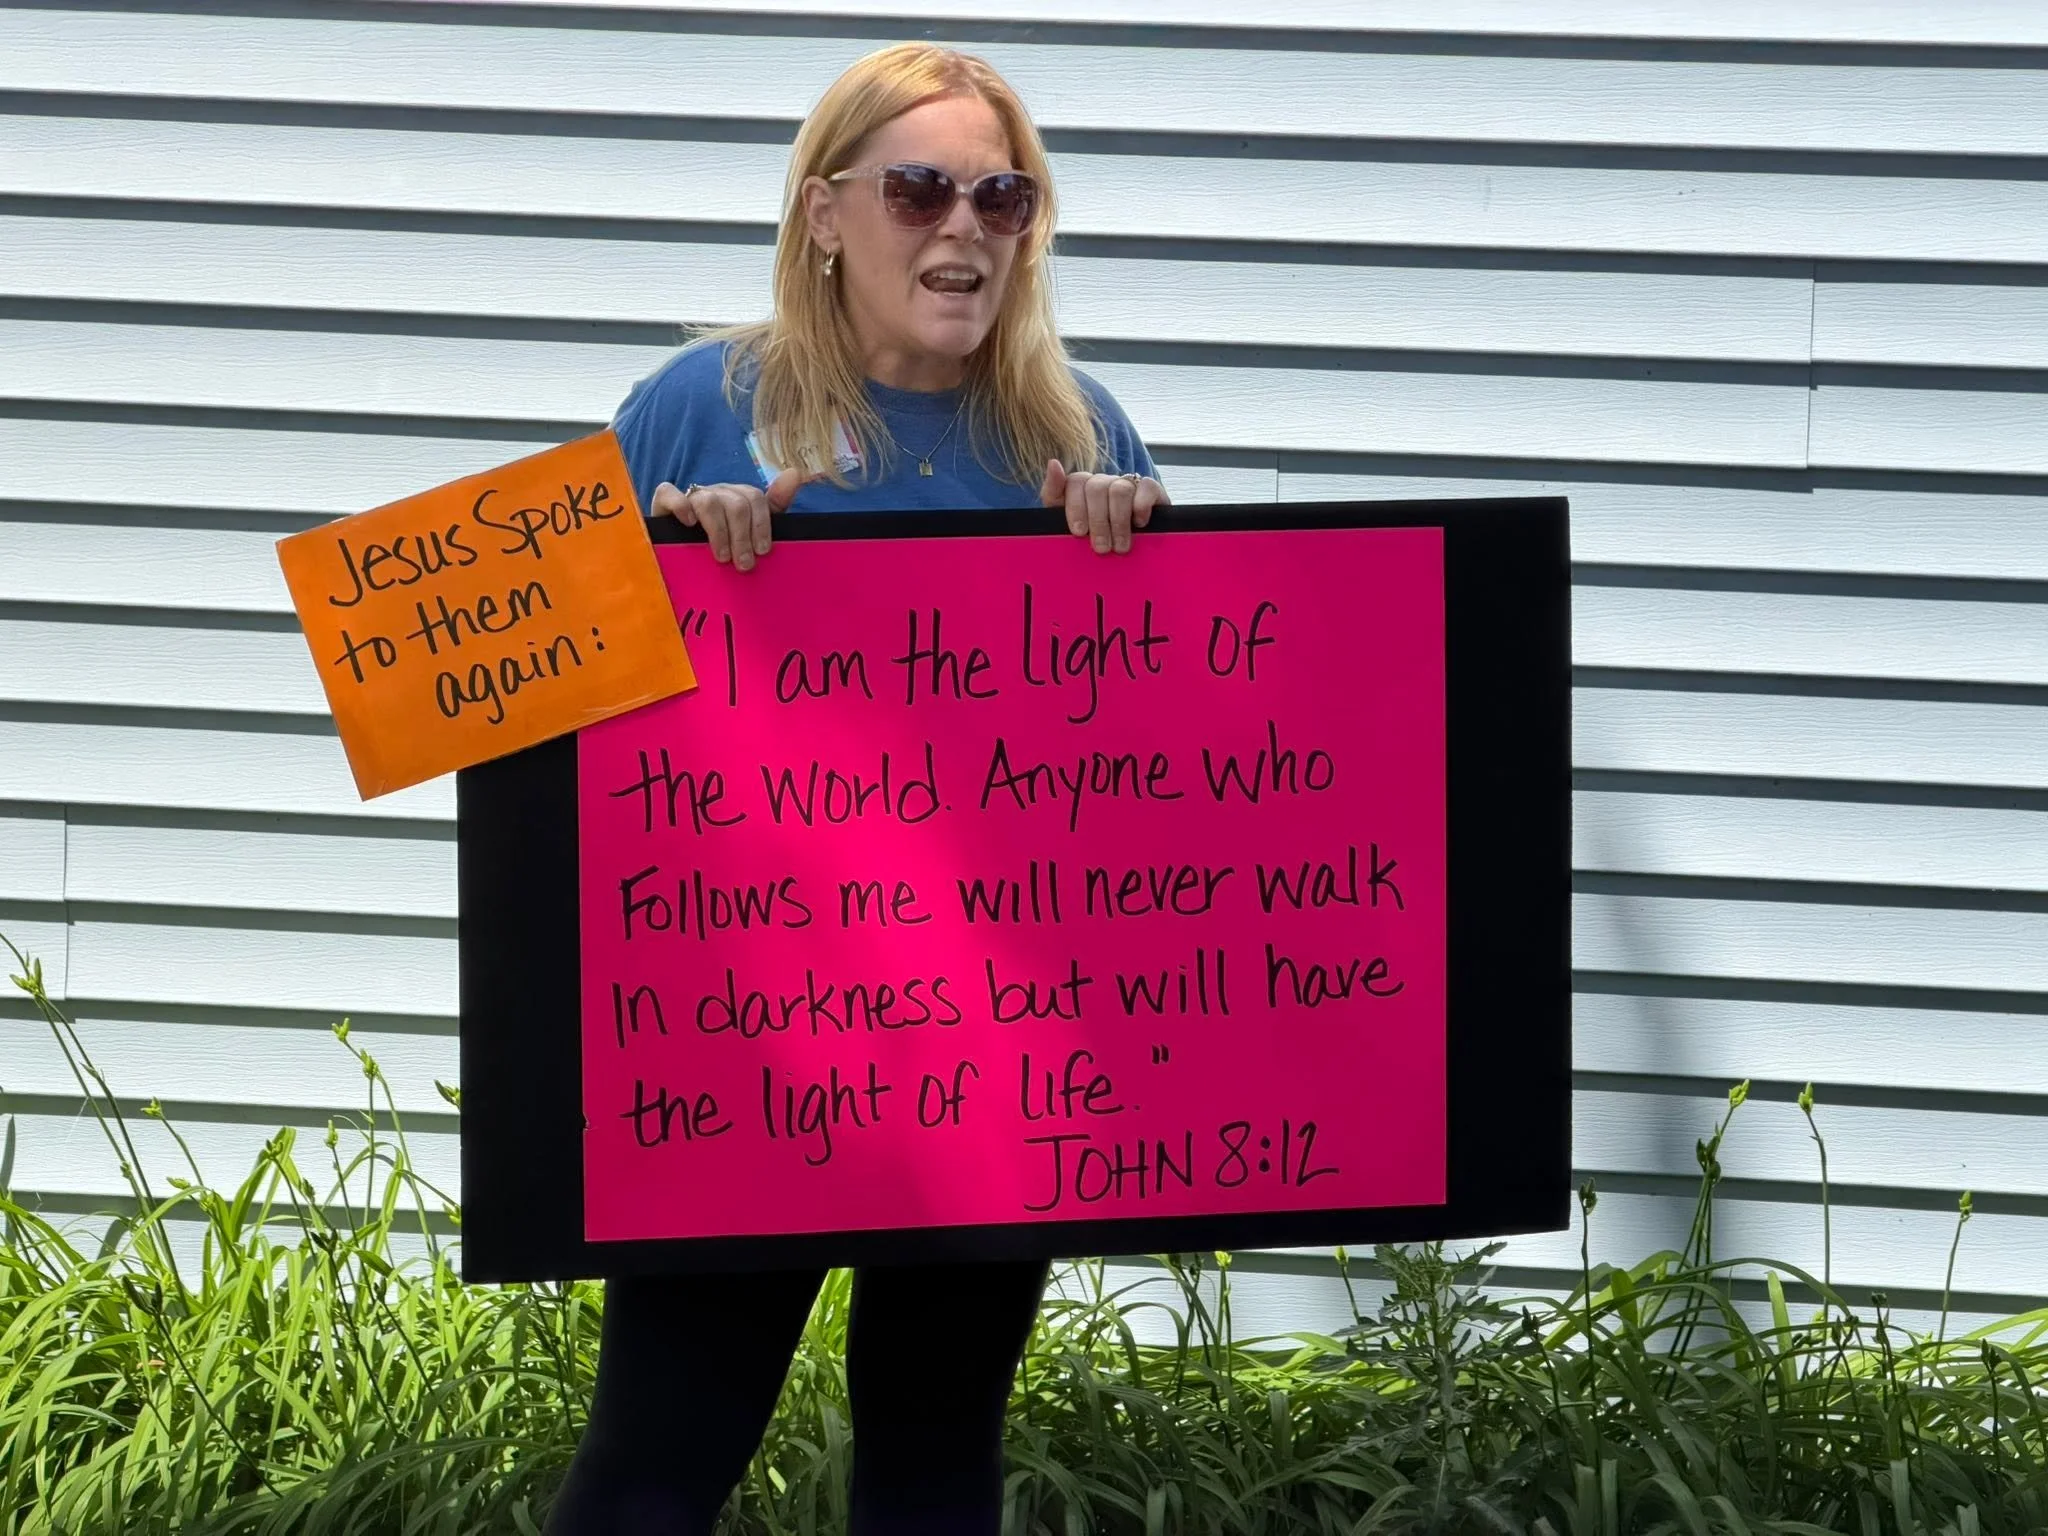 Jesus Spoke
to them
again:
"I am the light of
the world. Anyone who
Follows me will never walk
in darkness but will have
the light of life."
JOHN 8:12